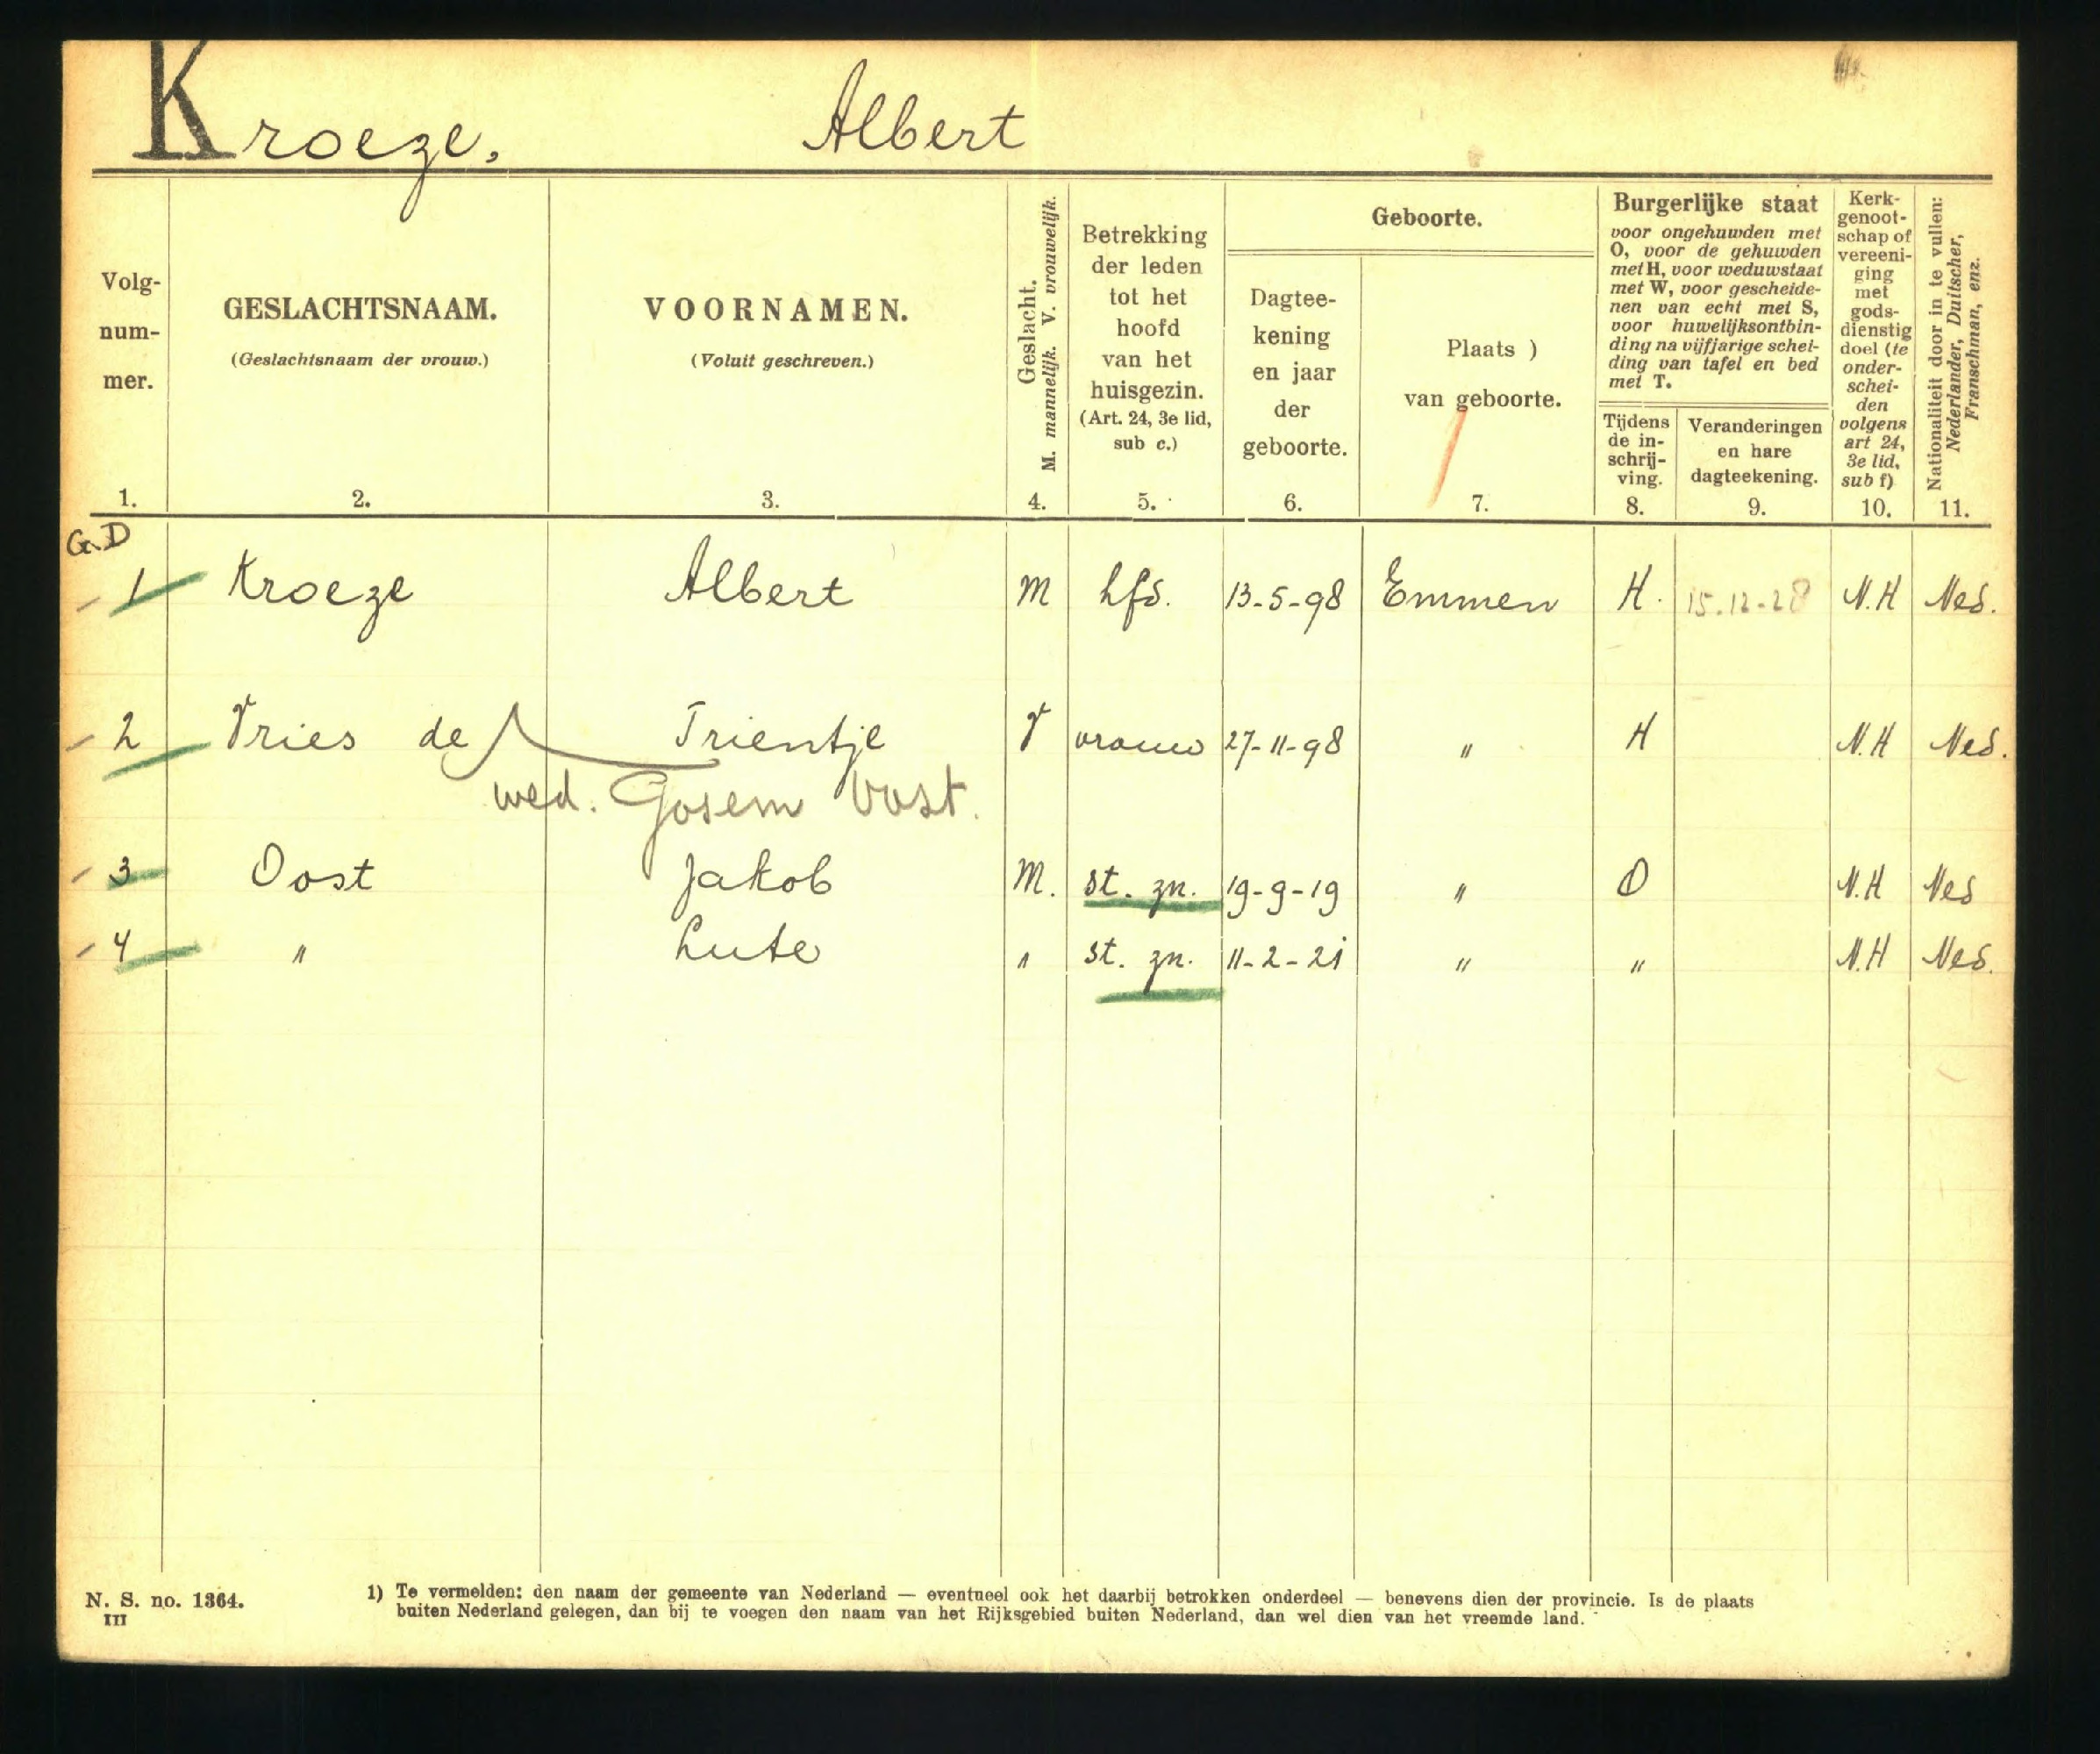 Kroeze, Albert
Volg-
num-
mer.
1.
GESLACHTSNAAM.
(Geslachtsnaam der vrouw.)
2.
VOORNAMEN.
(Voluit geschreven.)
3.
Geslacht.
M. mannelijk. V. vrouwelijk.
4.
Betrekking
der leden
tot het
hoofd
van het
huisgezin.
(Art. 24, 3e lid,
sub c.)
5.
Geboorte.
Dagtee-
kening
en jaar
der
geboorte.
6.
Plaats )
van geboorte.
7.
Burgerlijke staat
voor ongehuwden met
O, voor de gehuwden
met H, voor weduwstaat
met W, voor gescheide-
nen van echt met S,
voor huwelijksontbin-
ding na vijfjarige schei-
ding van tafel en bed
met T.
Tijdens
de in-
schrij-
ving.
8.
Veranderingen
en hare
dagteekening.
9.
Kerk-
genoot-
schap of
vereeni-
ging
met
gods-
dienstig
doel (te
onder-
schei-
den
volgens
art 24,
3e lid,
sub f)
10.
Nationaliteit door in te vullen:
Nederlander, Duitscher,
Franschman, enz.
11.
G.D
1 Kroeze Albert M hfd. 13-5-98 Emmen H. 15.12-28 N.H Ned.
2 Vries de Trientje V vrouw 27-11-98 " H N.H Ned.
wed. Gosem Oost.
3 Oost Jakob M. st. zn. 19-9-19 " O N.H Ned
4 " Lute " st. zn. 11-2-21 " " N.H Ned.
N. S. no. 1364.
III
1) Te vermelden: den naam der gemeente van Nederland — eventueel ook het daarbij betrokken onderdeel — benevens dien der provincie. Is de plaats
buiten Nederland gelegen, dan bij te voegen den naam van het Rijksgebied buiten Nederland, dan wel dien van het vreemde land.